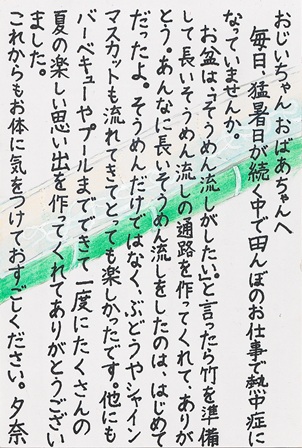 おじいちゃん おばあちゃんへ
毎日、猛暑日が続く中で田んぼのお仕事で熱中症に
なっていませんか。
お盆は、「そうめん流しがしたい。」と言ったら竹を準備
して長いそうめん流しの通路を作ってくれて、ありが
とう。あんなに長いそうめん流しをしたのは、はじめて
だったよ。そうめんだけではなく、ぶどうやシャイン
マスカットも流れてきてとっても楽しかったです。他にも
バーベキューやプールまでできて一度にたくさんの
夏の楽しい思い出を作ってくれてありがとうござい
ました。
これからもお体に気をつけておすごしください。夕奈